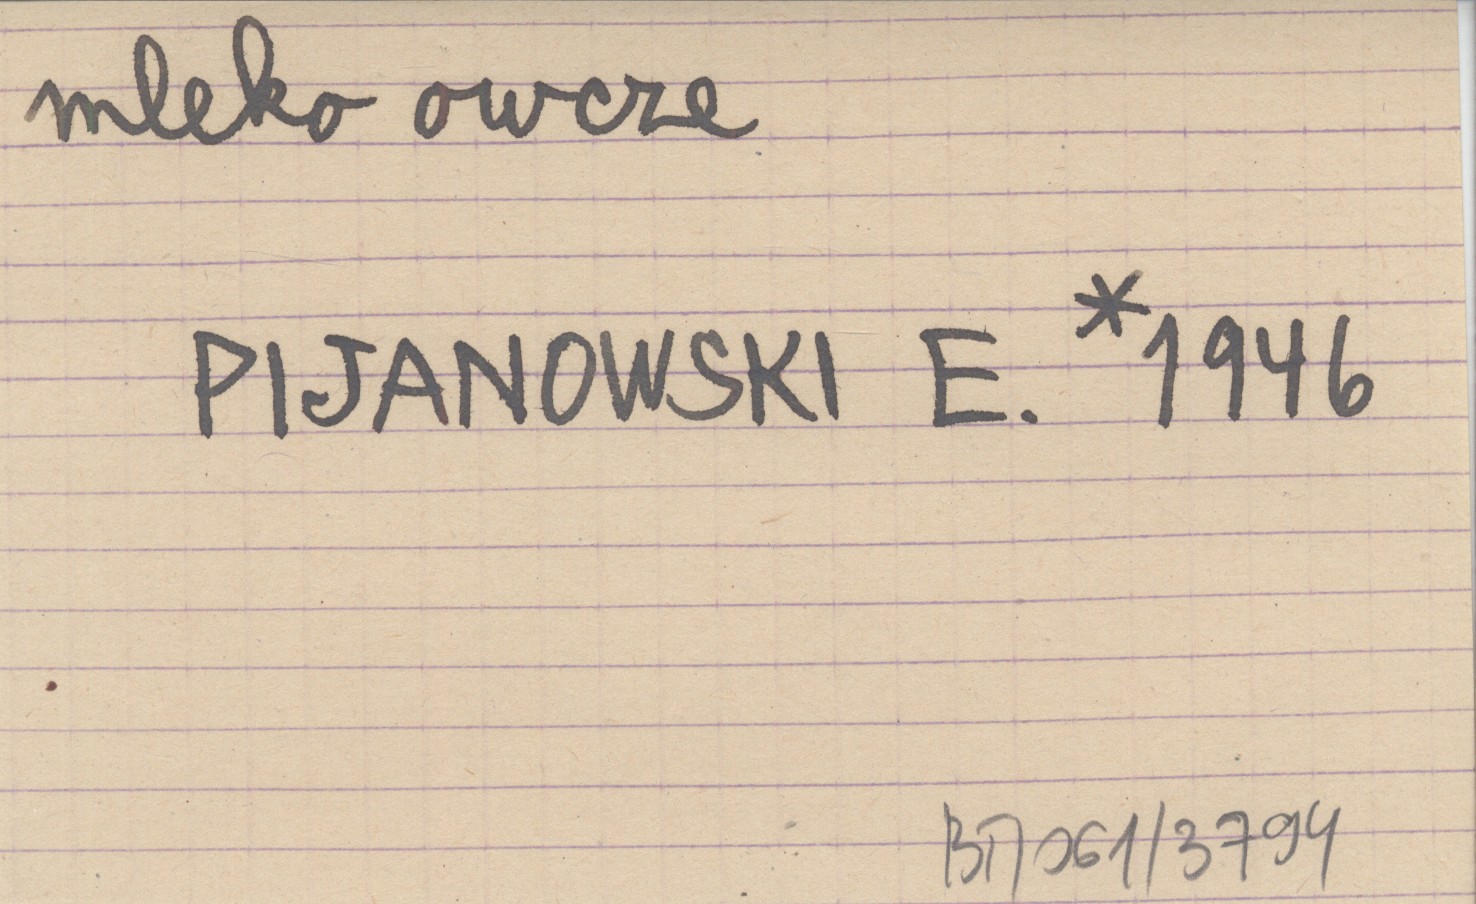 mleko owcze
PIJANOWSKI E. *1946
/3794